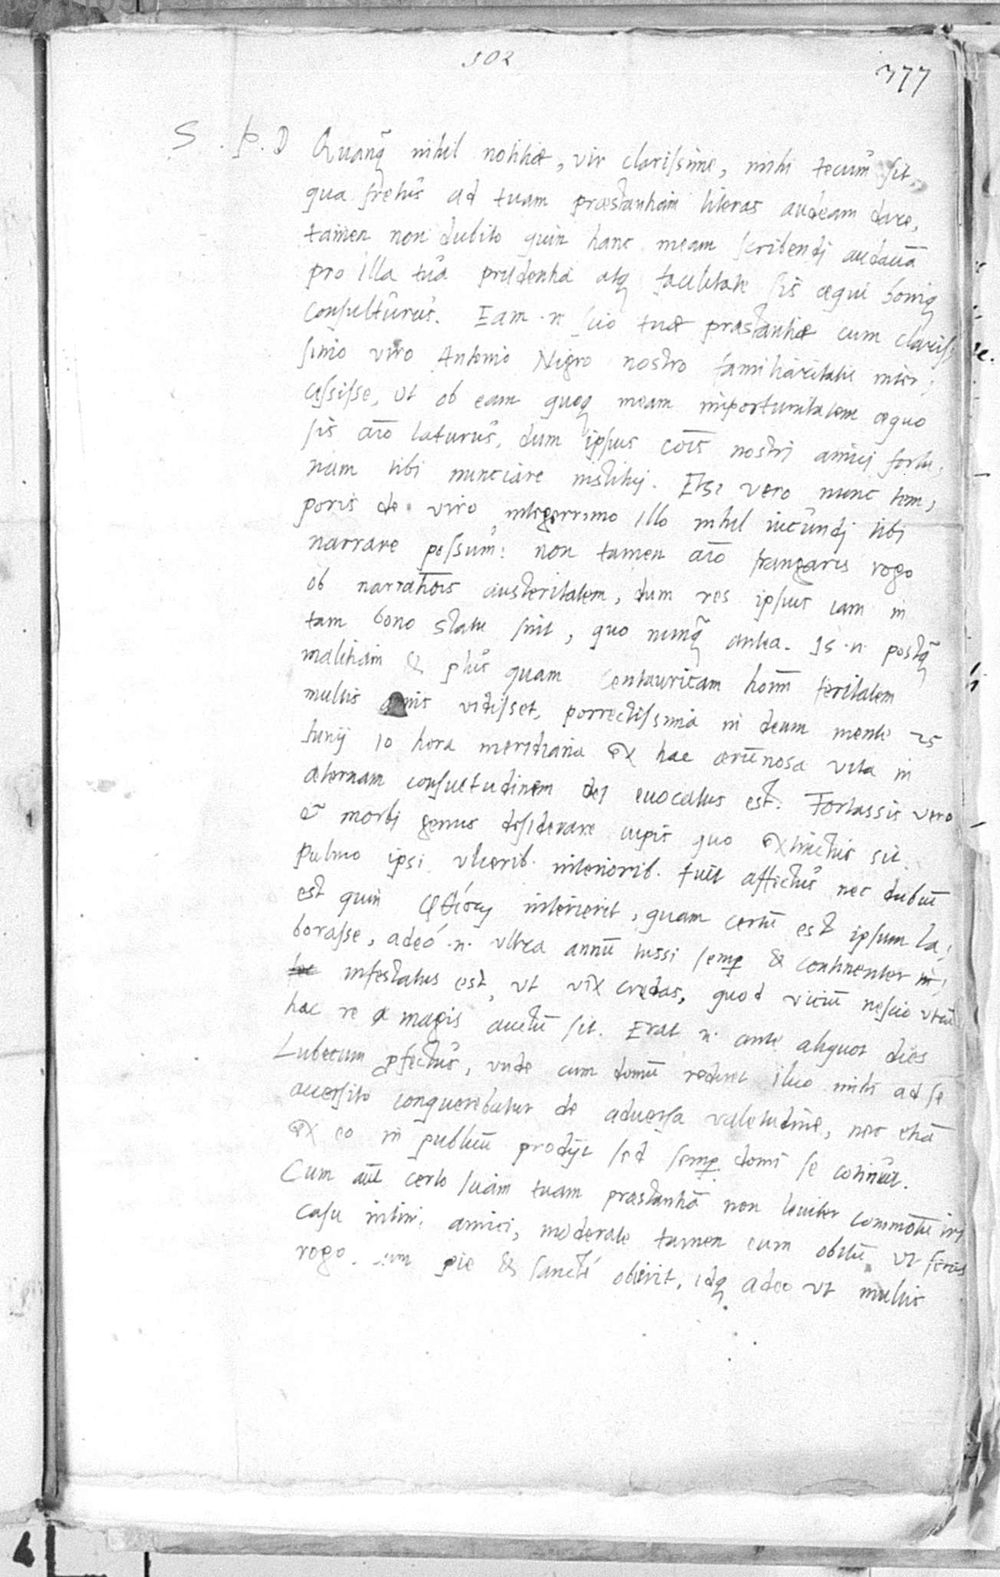 502
377
S. P. D Quanq̃ nihil notitiæ, vir clarissime, mihi tecum sit,
qua fretus ad tuam præstantiam literas audeam dare,
tamen non dubito quin hanc meam scribendi audaciā
pro illa tua prudentia atq facilitate sis æqui boniq
consulturus. Eam .n. scio tuæ præstantiæ cum claris,
simo viro Antonio Nigro nostro familiaritatē inter,
cessisse, ut ob eam quoq meam importunitatem æquo
sis aīo laturus, dum ipsius cōis nostri amici fortu,
nam tibi nunciare institui. Etsi vero nunc tem,
poris de viro integerrimo illo nihil iucundi tibi
narrare possum: non tamen aīo frangaris rogo
ob narratiōis austeritatem, dum res ipsius iam in
tam bono statu sint, quo nunq̃ antea. Is .n. postq̃
malitiam & plus quam Centauricam hoīm feritatem
multis annis vidisset, porrectissima in deum mente 25
Junij 10 hora meridiana ex hac ærumnosa vita in
æternam consuetudinem dei euocatus est. Fortassis vero
& morbi genus desiderare cupis quo extinctus sit.
Pulmo ipsi vlcerib. interiorib. fuit affectus nec dubiū
est quin φθίσει interierit, quam certū est ipsum la,
borasse, adeo .n. vltra annū tussi semp & continenter
infestatus est, ut vix credas, quod viciū nescio utrū
hac re magis auctū sit. Erat .n. ante aliquot dies
Lubecum pfectus, unde cum domū rediret ilico mihi ad se
accersito conquerebatur de aduersa valetudine, nec etiā
ex eo in publicū prodijt sed semp domi se continuit.
Cum aūt certo sciam tuam præstantiā non leuiter commotū iri
casu intimi amici, moderate tamen eum obitū ut feras
rogo. cum pie & sancte obierit, idq adeo ut multis